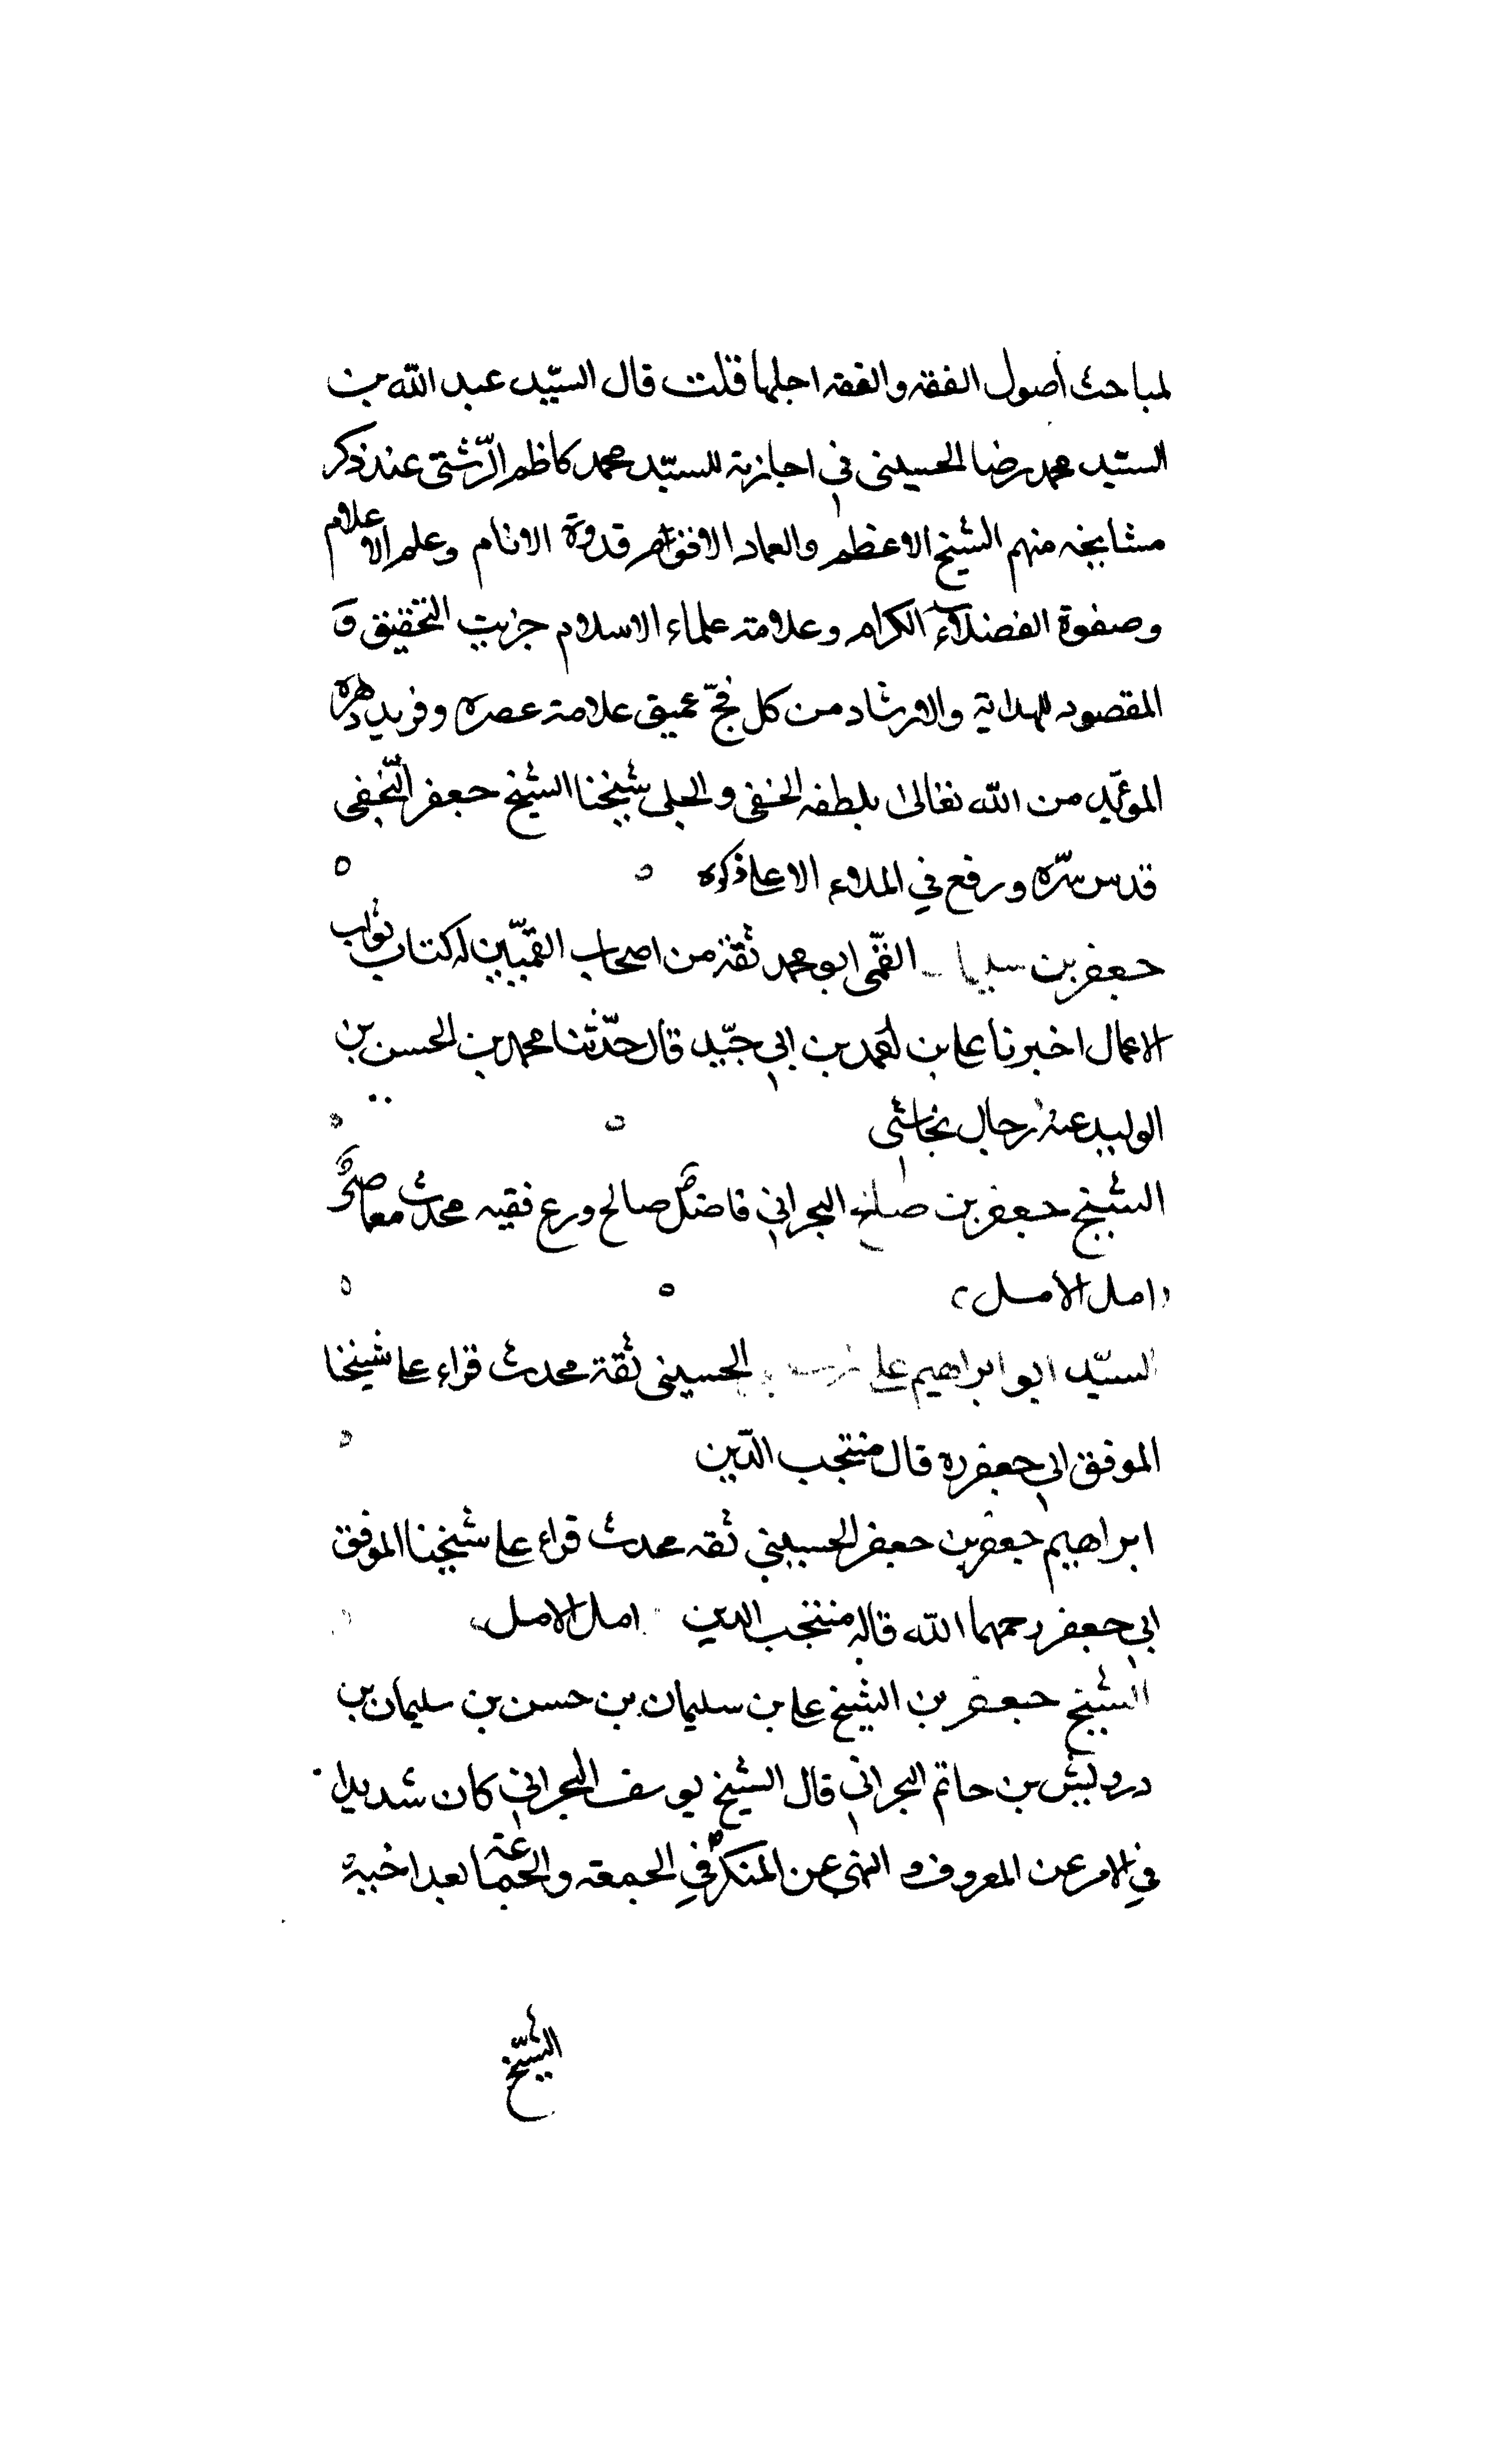 لمباحث أصول الفقه والفقه اجلها قلت قال السيّد عبد الله بن
السيّد محمد رضا الحسيني في اجازته للسيّد محمد كاظم الرّشتي عند ذكر
مشايخه منهم الشيخ الاعظم والعماد الاقوم قدوة الانام وعلم الاعلام
وصفوة الفضلاء الكرام وعلامة علماء الاسلام خرّيت التحقيق و
المقصود للهداية والارشاد من كل فجّ عميق علامة عصره وفريد دهره
المؤيّد من الله تعالى بلطفه الخفي والجلي شيخنا الشيخ جعفر النّجفي
قدس سرّه ورفع في الملاء الاعلى ذكره
جعفر بن القمّي ابو محمد ثقة من اصحاب القمّيين له كتاب ثواب
الاعمال اخبرنا علي بن احمد بن ابي جيّد قال حدّثنا محمد بن الحسن بن
الوليد عنه رجال نجاشي
الشيخ جعفر بن صالح البحراني فاضل صالح ورع فقيه محدث معاصر
(امل الأمل)
السيّد ابو ابراهيم الحسيني ثقة محدث قراء على شيخنا
الموفق ابي جعفر ره قال منتجب الدّين
ابراهيم جعفر بن جعفر الحسيني ثقه محدث قراء على شيخنا الموفق
ابي جعفر رحمهما الله قاله منتجب الدين امل الامل
الشيخ جعفر بن الشيخ علي بن سليمان بن حسن بن سليمان بن
درويش بن حاتم البحراني قال الشيخ يوسف البحراني كان شديدا
في الامر عن المعروف و النهي عن المنكر في الجمعة والجماعة بعد اخيه
الشيّخ